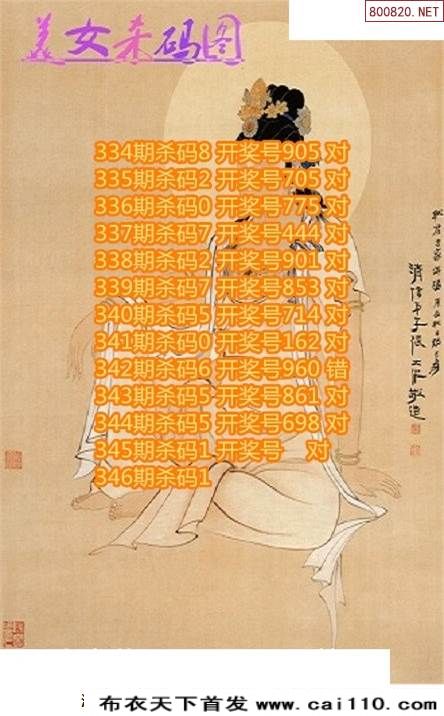 800820.NET
美女杀码图
334期杀码8 开奖号905 对
335期杀码2 开奖号705 对
336期杀码0 开奖号775 对
337期杀码7 开奖号444 对
338期杀码2 开奖号901 对
339期杀码7 开奖号853 对
340期杀码5 开奖号714 对
341期杀码0 开奖号162 对
342期杀码6 开奖号960 错
343期杀码5 开奖号861 对
344期杀码5 开奖号698 对
345期杀码1 开奖号 对
346期杀码1
布衣天下首发 www.cai110.com